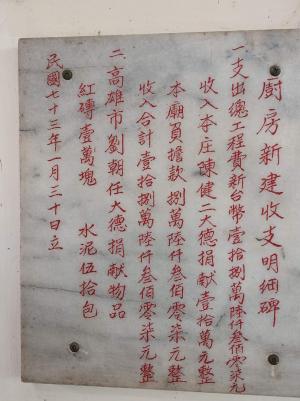 廚房新建收支明細碑
一支出總工程費新台幣壹拾捌萬陸仟叁佰零柒元
收入本庄陳健二大德捐献壹拾萬元整
本廟負擔款捌萬陸仟叁佰零柒元整
收入合計壹拾捌萬陸仟叁佰零柒元整
二高雄市劉朝任大德捐献物品
紅磚壹萬塊 水泥伍拾包
民國七十三年一月三十日立